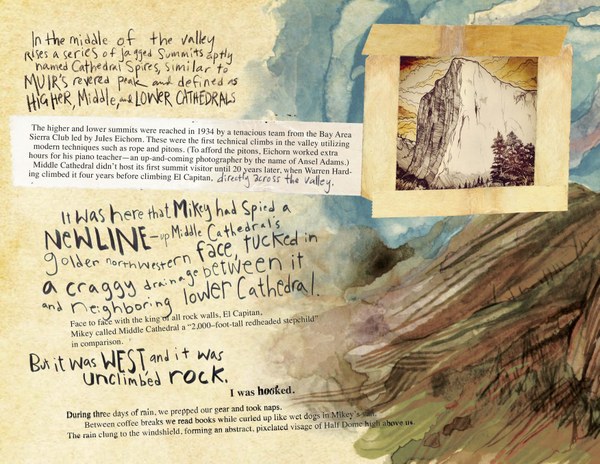 In the middle of the valley
rises a series of jagged summits aptly
named Cathedral Spires, similar to
MUIR'S revered peak and defined as
HIGHER, Middle, and LOWER CATHEDRALS
The higher and lower summits were reached in 1934 by a tenacious team from the Bay Area
Sierra Club led by Jules Eichorn. These were the first technical climbs in the valley utilizing
modern techniques such as rope and pitons. (To afford the pitons, Eichorn worked extra
hours for his piano teacher—an up-and-coming photographer by the name of Ansel Adams.)
Middle Cathedral didn't host its first summit visitor until 20 years later, when Warren Hard-
ing climbed it four years before climbing El Capitan, directly across the valley.
It was here that Mikey had Spied a
NEW LINE—up Middle Cathedral's
golden northwestern face, tucked in
a craggy drainage between it
and neighboring lower Cathedral.
Face to face with the king of all rock walls, El Capitan,
Mikey called Middle Cathedral a "2,000-foot-tall redheaded stepchild"
in comparison.
But it was WEST, and it was
unclimbed rock.
I was hooked.
During three days of rain, we prepped our gear and took naps.
Between coffee breaks we read books while curled up like wet dogs in Mikey's van.
The rain clung to the windshield, forming an abstract, pixelated visage of Half Dome high above us.